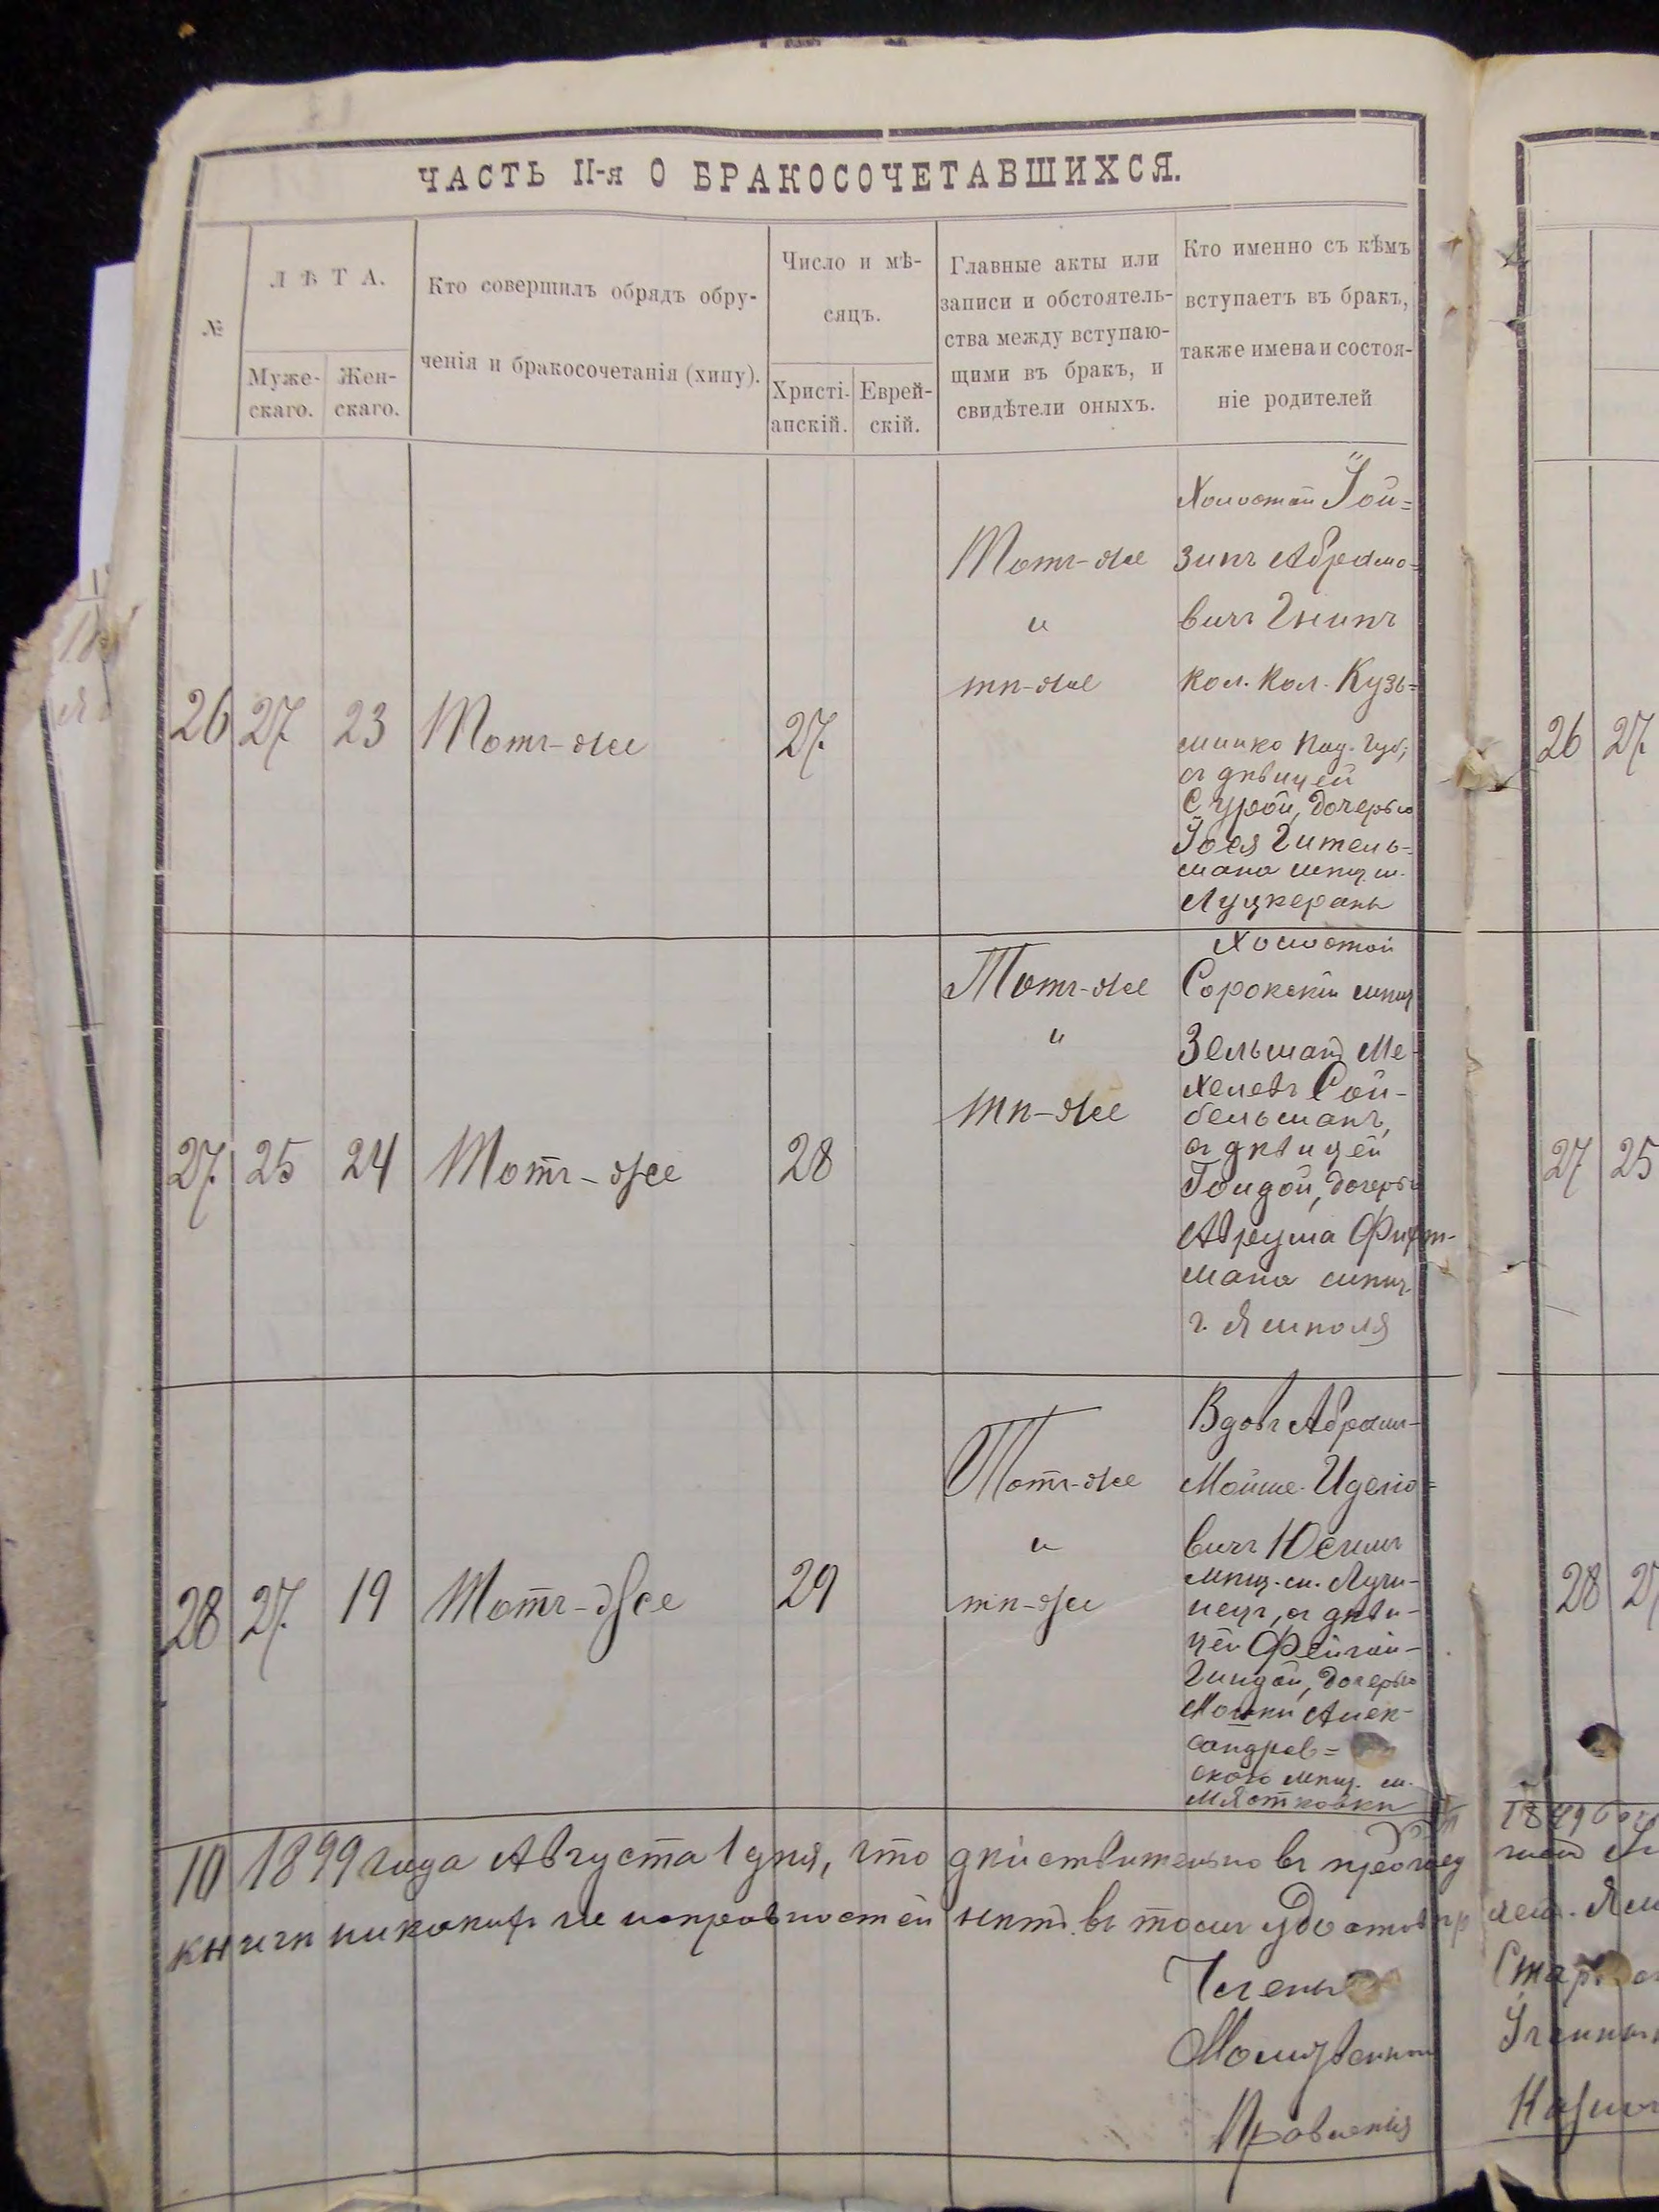 ЧАСТЬ II-я О БРАКОСОЧЕТАВШИХСЯ.
№
ЛѢТА.
Муже-
скаго.
Жен-
скаго.
Кто совершилъ обрядъ обру-
ченія и бракосочетанія (хипу).
Число и мѣ-
сяцъ.
Христі-
анскій.
Еврей-
скій.
Главные акты или
записи и обстоятель-
ства между вступаю-
щими въ бракъ, и
свидѣтели оныхъ.
Кто именно съ кѣмъ
вступаетъ въ бракъ,
также имена и состоя-
ніе родителей
26 27 23 Тотъ-же 27
Тотъ-же
и
тѣ-же
Холостой Іой=
зипъ Абрамо=
вичъ Гнипъ
кол. кол. Кузь=
минко Под. Губ.,
съ дѣвицей
Сурой, дочерью
Іося Гитель-
мана мѣщ. м.
Лучкераны
27 25 24 Тотъ-же 28
Тотъ-же
и
тѣ-же
Холостой
Сорокскій мѣщ
Зельманъ Ме-
хелевъ Сой-
бельманъ,
съ дѣвицей
Гольдой, дочерью
Аврума
мана мѣщ.
г. Ямполя
28 27 19 Тотъ-же 29
Тотъ-же
и
тѣ-же
Вдовъ Абрам-
Мойше Иделіо=
вичъ Юсимъ
мѣщ. м. Лучи-
нецъ, съ дѣви-
цей Фейгой-
Гиндой, дочерью
Мошки Алек-
сандров=
скаго мѣщ. м.
Мястковки
1899 года Августа 1 дня, что дѣйствительно въ
книгѣ никакихъ неисправностей нѣтъ въ томъ удостовѣр
Члены
Молитвеннаго
Правленія
26 27
27 25
28 27